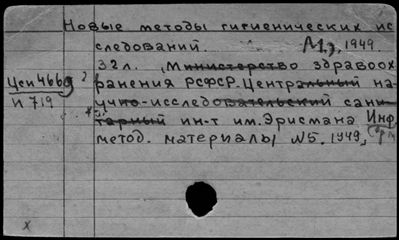 Новые методы гигиенических ис
следований. М., 1949.
32л. , Министерство здравоох
Цси 4669 ранения РСФСР. Центральный на-
И 719 учно-исследовательский сани
тарный ин-т им. Эрисмана Инф.
метод. материалы №5. 1949,
x